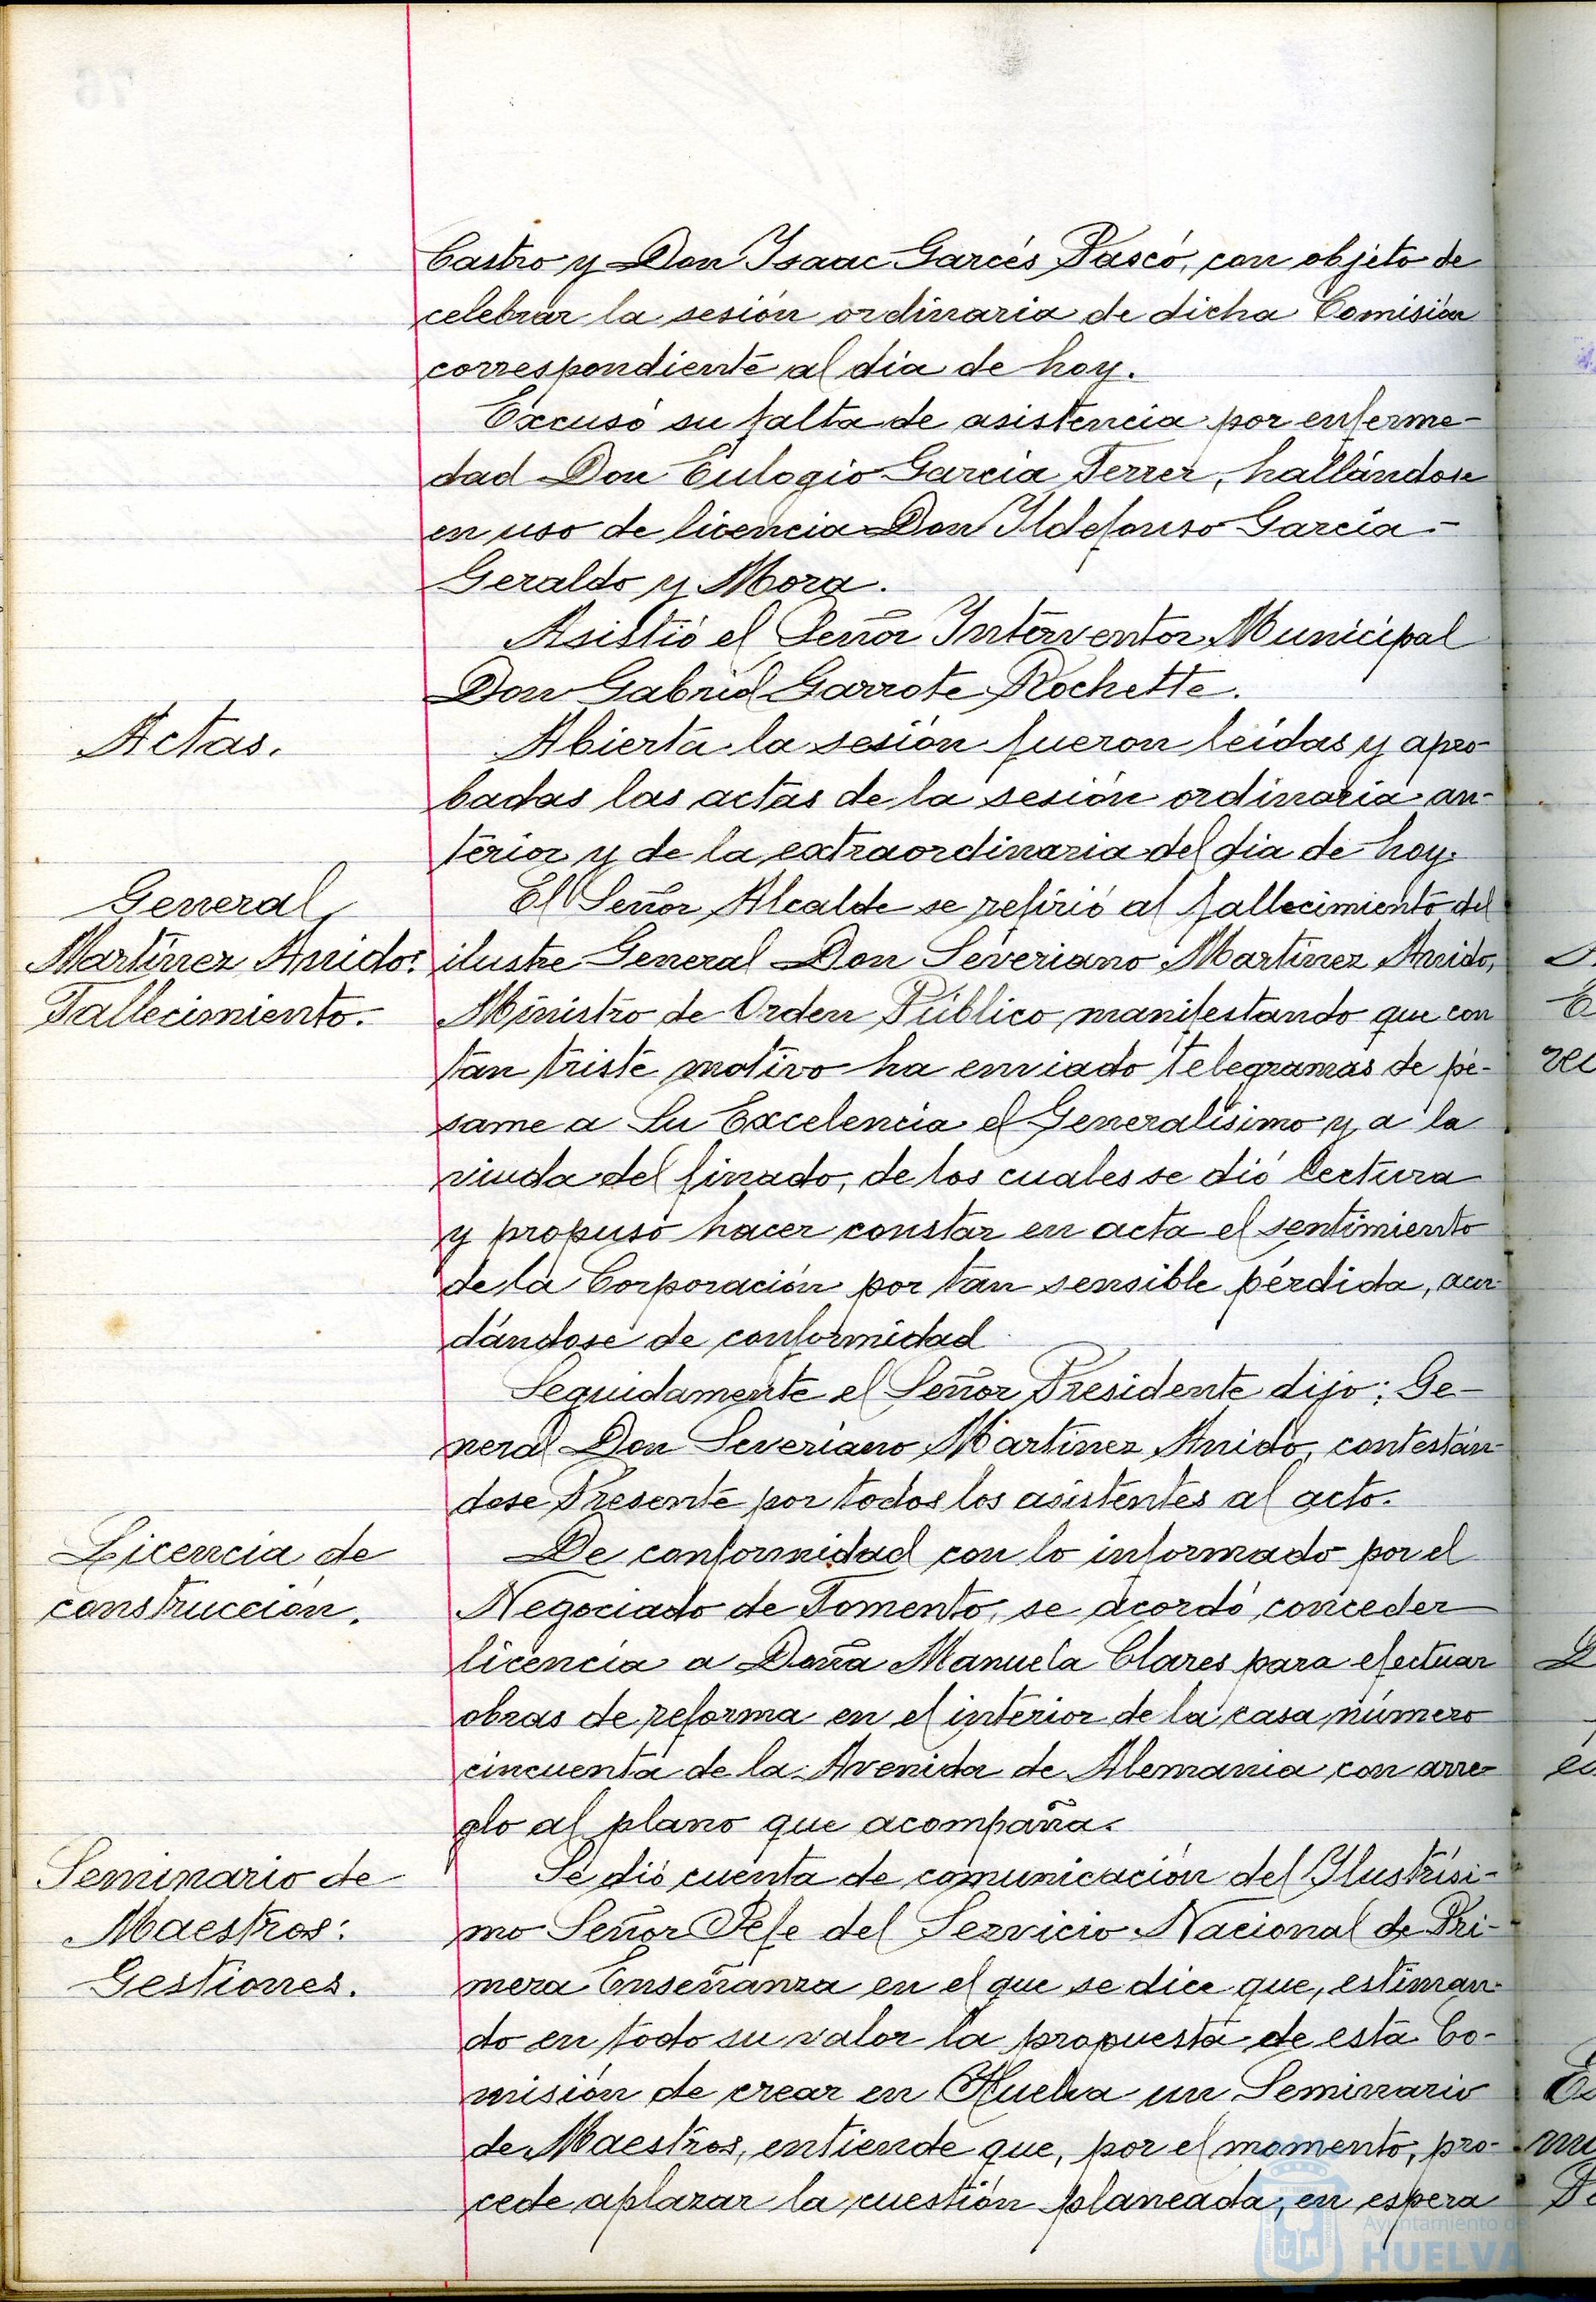 Castro y Don Isaac Garcés Pascó, con objeto de
celebrar la sesión ordinaria de dicha Comisión
correspondiente al dia de hoy.
Excusó su falta de asistencia por enferme-
dad Don Eulogio Garcia Ferrer, hallándose
en uso de licencia Don Ildefonso Garcia-
Geraldo y Mora.
Asistió el Señor Interventor Municipal
Don Gabriel Garrote Rochette.
Actas.
Abierta la sesión fueron leídas y apro-
badas las actas de la sesión ordinaria an-
terior y de la extraordinaria del dia de hoy.
General
Martínez Anido:
Fallecimiento.
El Señor Alcalde se refirió al fallecimiento del
ilustre General Don Severiano Martínez Anido,
Ministro de Orden Público, manifestando que con
tan triste motivo ha enviado telegramas de pé-
same a Su Excelencia el Generalísimo y a la
viuda del finado, de los cuales se dió lectura
y propuso hacer constar en acta el sentimiento
de la Corporación por tan sensible pérdida, acor-
dándose de conformidad
Seguidamente el Señor Presidente dijo: Ge-
neral Don Severiano Martínez Anido, contestán-
dose Presente por todos los asistentes al acto.
Licencia de
construcción.
De conformidad con lo informado por el
Negociado de Fomento, se acordó conceder
licencia a Doña Manuela Clares para efectuar
obras de reforma en el interior de la casa número
cincuenta de la Avenida de Alemania con arre-
glo al plano que acompaña.
Seminario de
Maestros:
Gestiones.
Se dió cuenta de comunicación del Ilustrísi-
mo Señor Jefe del Servicio Nacional de Pri-
mera Enseñanza en el que se dice que, estiman-
do en todo su valor la propuesta de esta Co-
misión de crear en Huelva un Seminario
de Maestros, entiende que, por el momento, pro-
cede aplazar la cuestión planeada, en espera
Ayuntamiento de
HUELVA